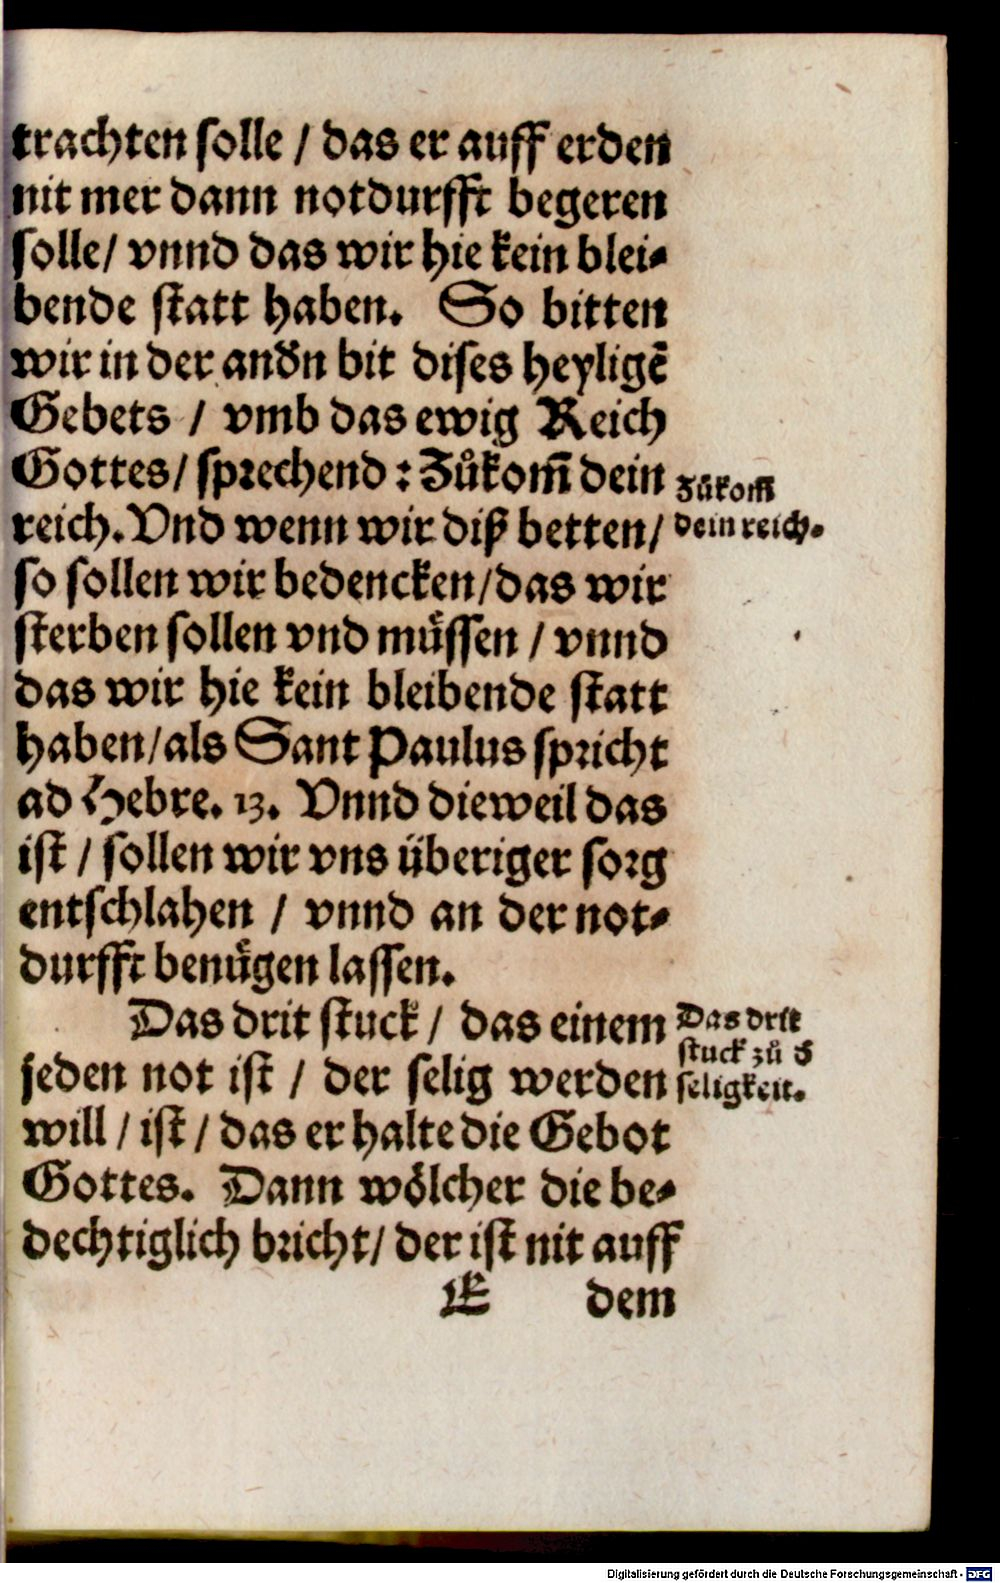 trachten solle / das er auff erden
nit mer dann notdurfft begeren
solle / vnnd das wir hie kein blei-
bende statt haben. So bitten
wir in der andn bit dises heyligẽ
Gebets / vmb das ewig Reich
Gottes / sprechend : Zůkom̃ dein
reich. Vnd wenn wir diß betten /
so sollen wir bedencken / das wir
sterben sollen vnd muͤssen / vnnd
das wir hie kein bleibende statt
haben / als Sant Paulus spricht
ad Hebre. 13. Vnnd dieweil das
ist / sollen wir vns überiger sorg
entschlahen / vnnd an der not-
durfft benuͤgen lassen.
Zůkom̃
dein reich.
Das drit stuck / das einem
jeden not ist / der selig werden
will / ist / das er halte die Gebot
Gottes. Dann woͤlcher die be-
dechtiglich bricht / der ist nit auff
Das drit
stuck zů d
seligkeit.
E dem
Digitalisierung gefördert durch die Deutsche Forschungsgemeinschaft - DFG